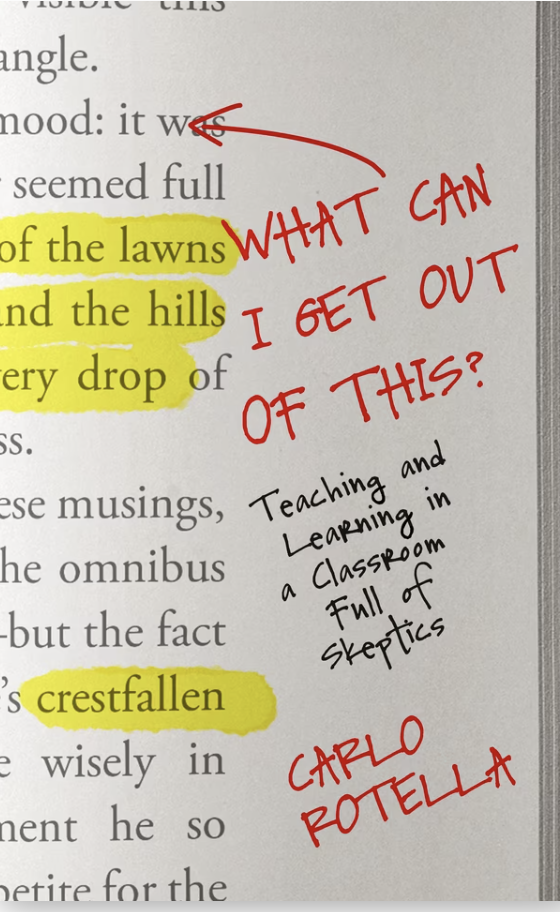 visible this
angle.
mood: it was
seemed full
of the lawns
and the hills
every drop of
ss.
ese musings,
he omnibus
-but the fact
's crestfallen
e wisely in
ment he so
petite for the
WHAT CAN
I GET OUT
OF THIS?
Teaching and
Learning in
a Classroom
Full of
Skeptics
CARLO
ROTELLA